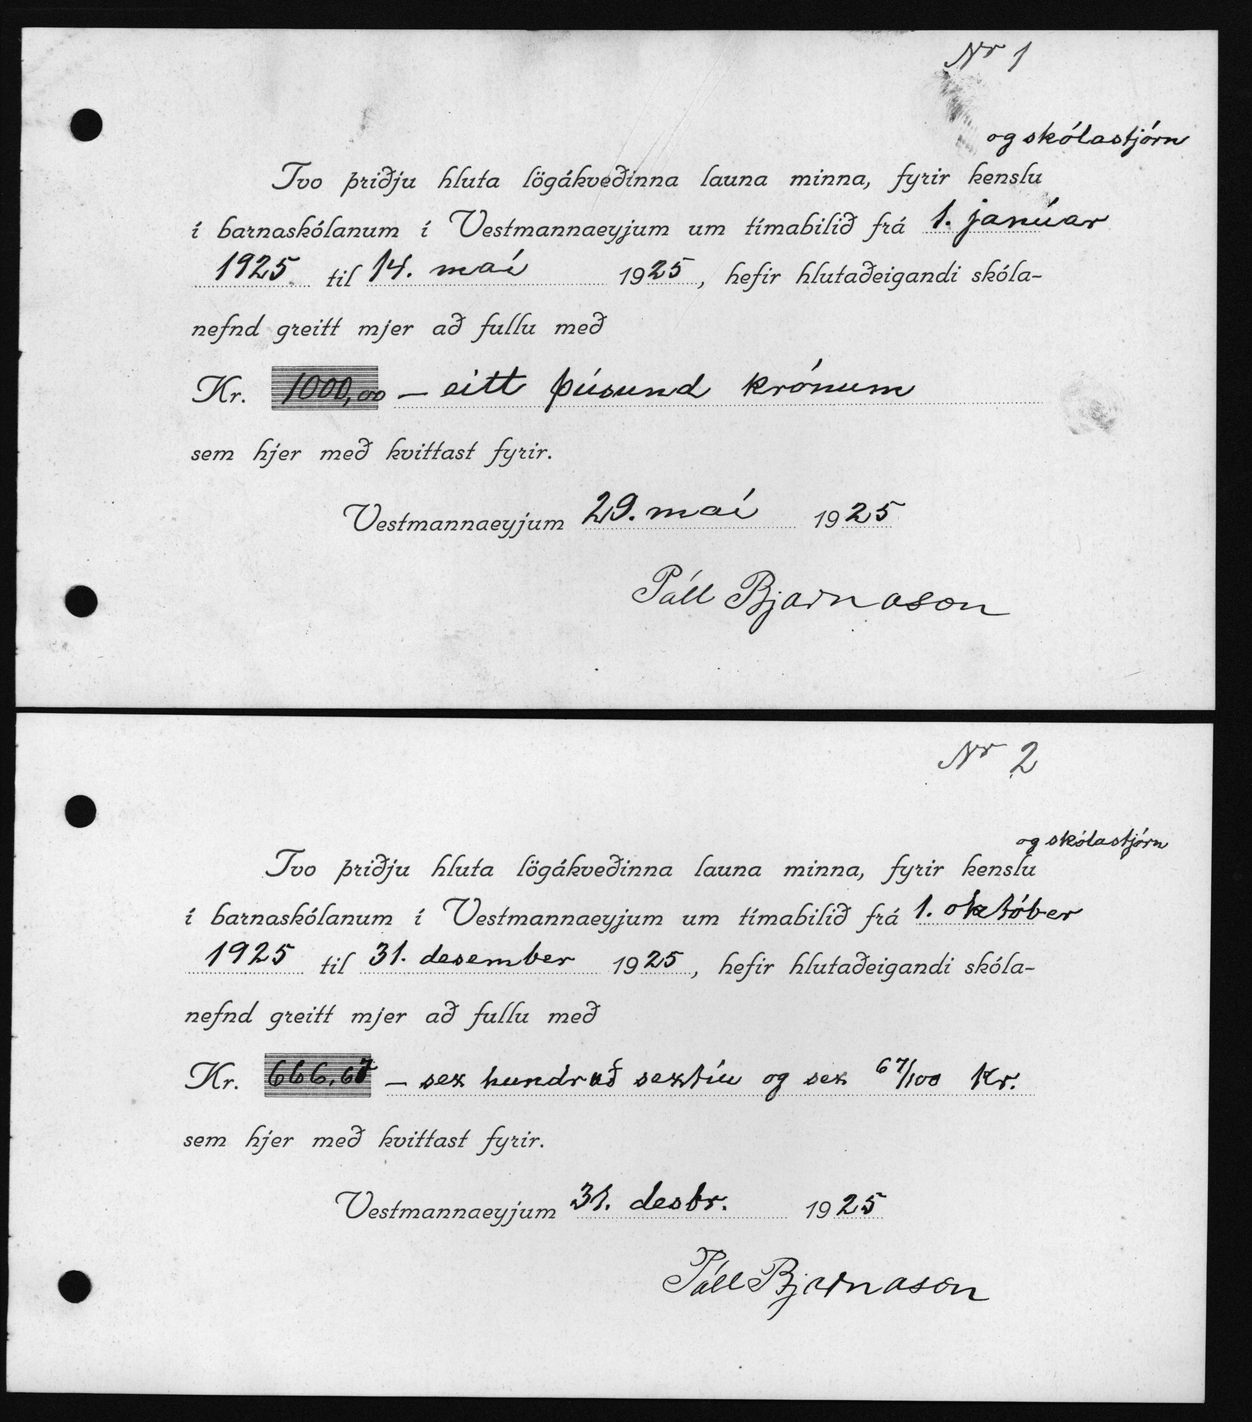 Nr 1
og skólastjórn
Tvo þriðju hluta lögákveðinna launa minna, fyrir kenslu
í barnaskólanum í Vestmannaeyjum um tímabilið frá 1. janúar
1925 til 14. maí 1925, hefir hlutaðeigandi skóla-
nefnd greitt mjer að fullu með
Kr. 1000,00 — eitt þúsund krónum
sem hjer með kvittast fyrir.
Vestmannaeyjum 29. maí 1925
Páll Bjarnason
Nr 2
og skólastjórn
Tvo þriðju hluta lögákveðinna launa minna, fyrir kenslu
í barnaskólanum í Vestmannaeyjum um tímabilið frá 1. október
1925 til 31. desember 1925, hefir hlutaðeigandi skóla-
nefnd greitt mjer að fullu með
Kr. 666,67 — sex hundruð sextíu og sex 67/100 Kr.
sem hjer með kvittast fyrir.
Vestmannaeyjum 31. desbr. 1925
Páll Bjarnason